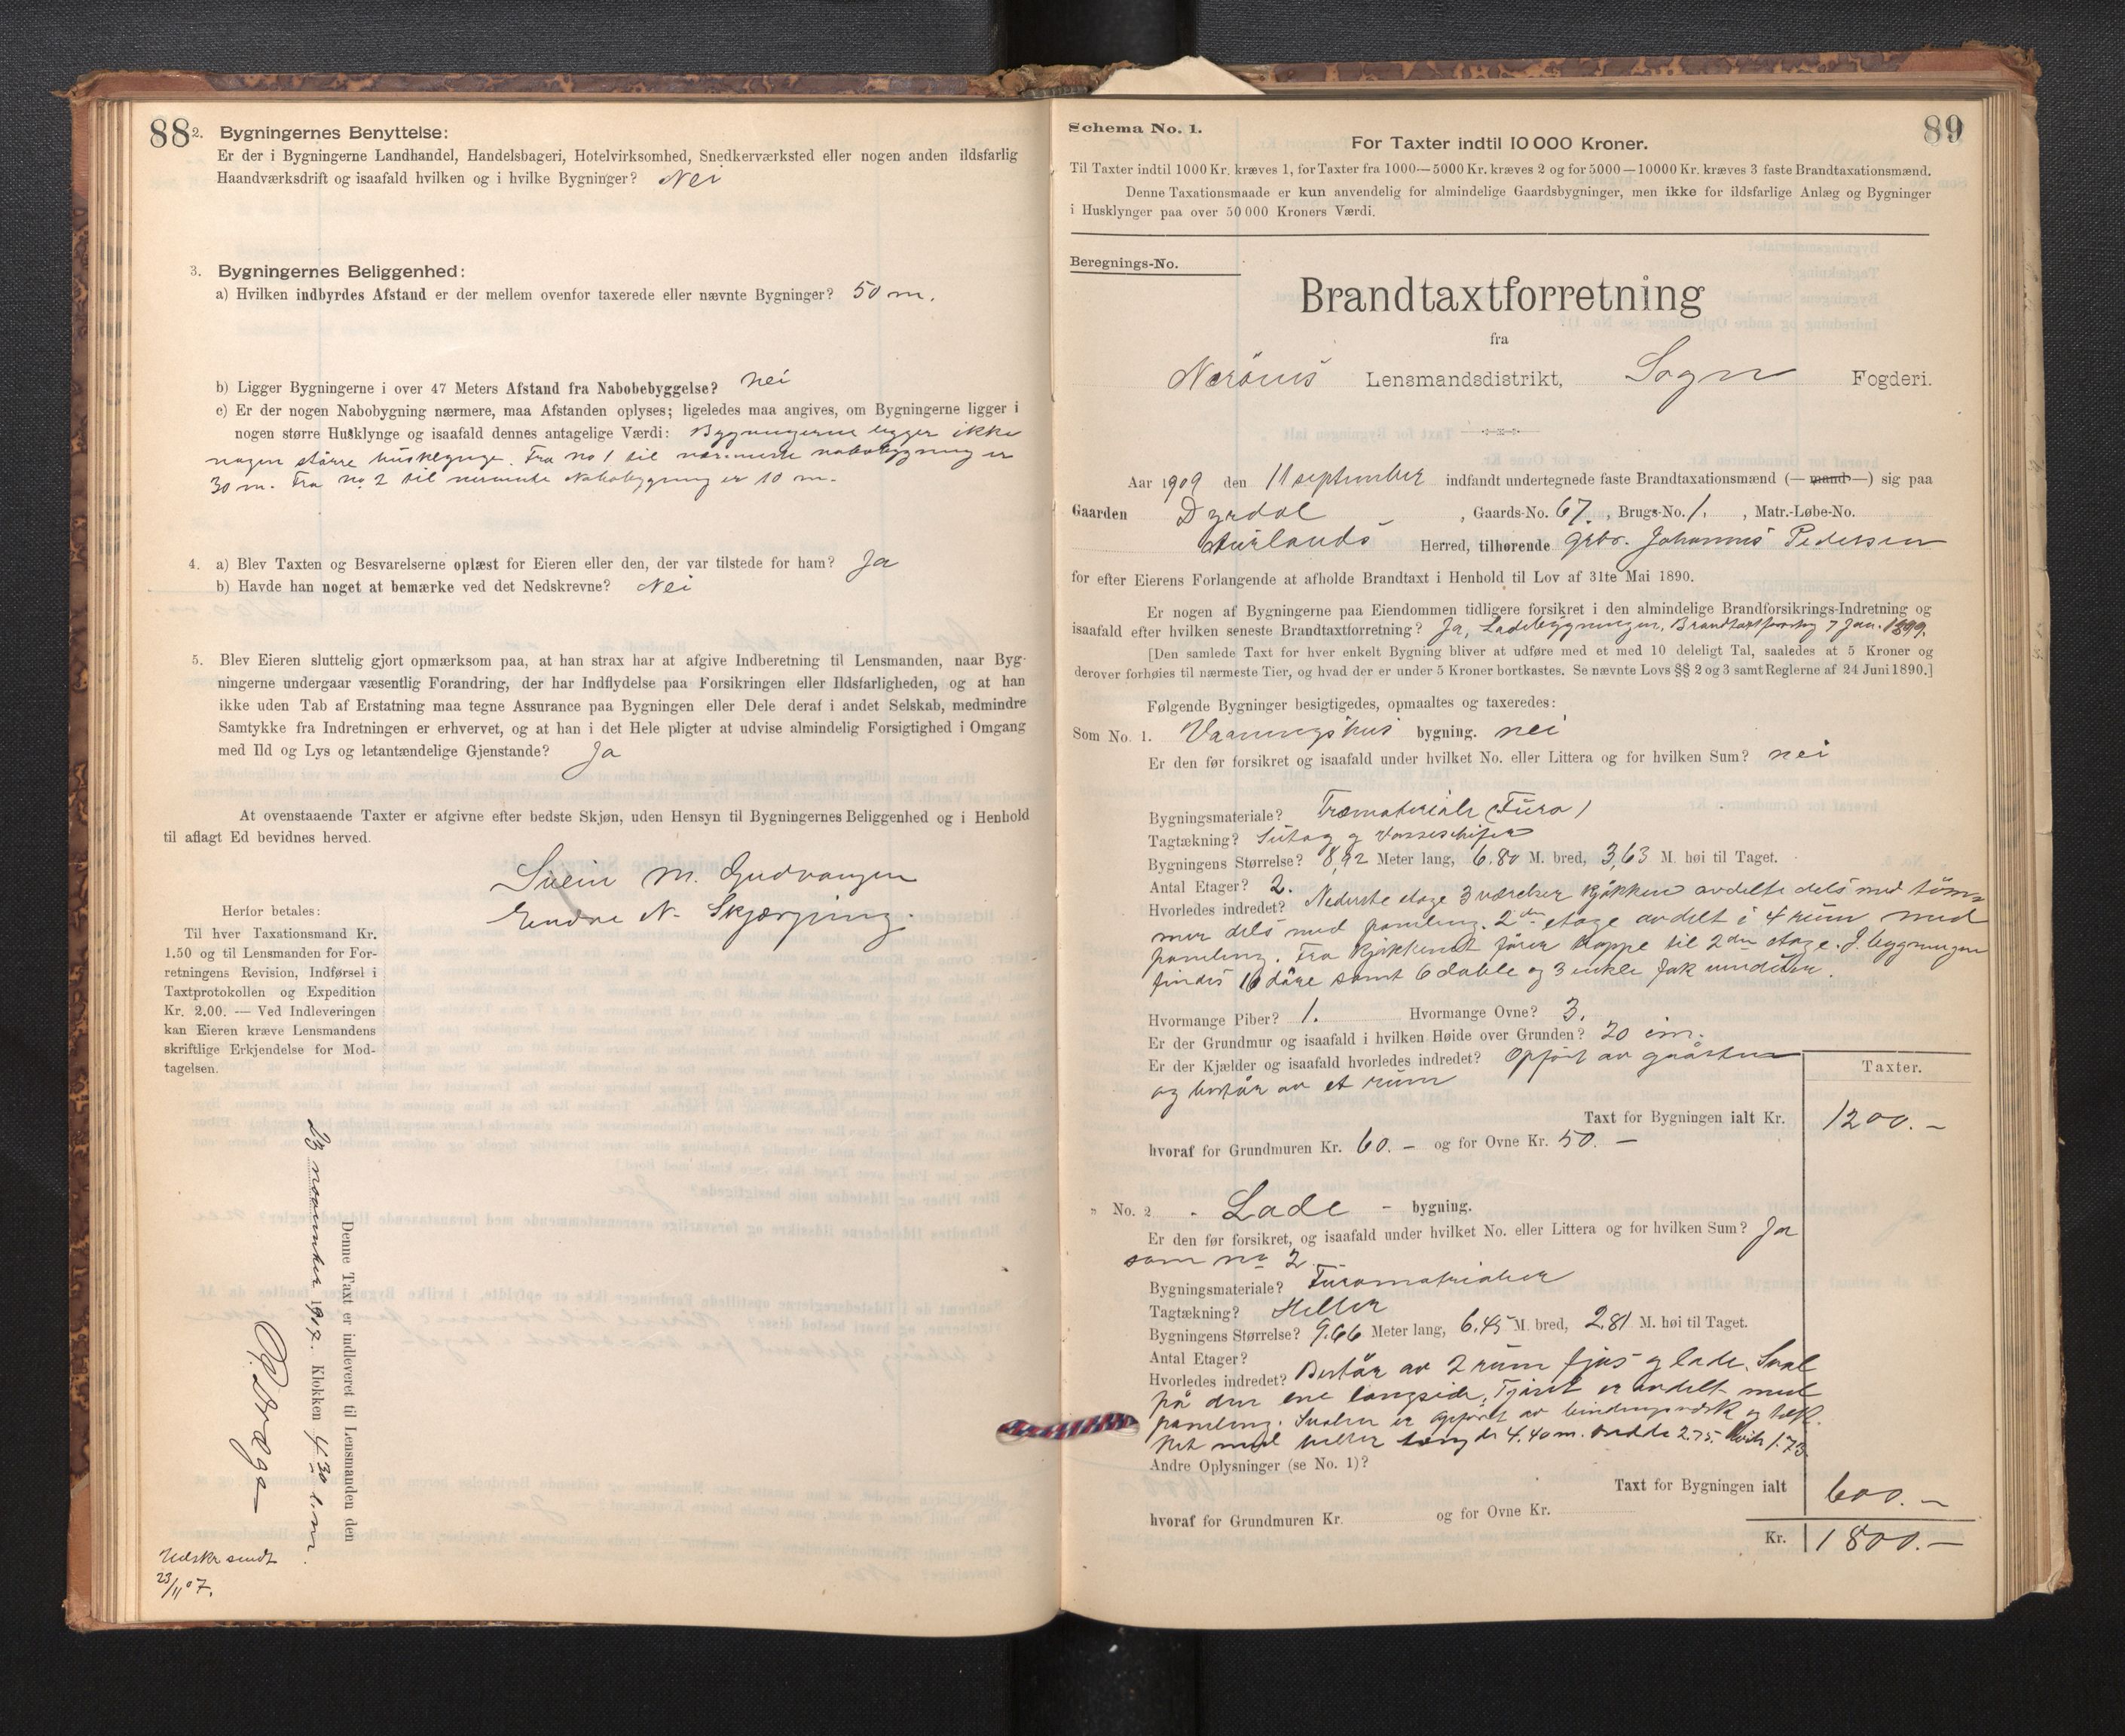 88
2. Bygningernes Benyttelse:
Er der i Bygningerne Landhandel, Handelsbageri, Hotelvirksomhed, Snedkerværksted eller nogen anden ildsfarlig
Haandværksdrift og isaafald hvilken og i hvilke Bygninger? Nei
3. Bygningernes Beliggenhed:
a) Hvilken indbyrdes Afstand er der mellem ovenfor taxerede eller nævnte Bygninger? 50 m.
b) Ligger Bygningerne i over 47 Meters Afstand fra Nabobebyggelse? nei
c) Er der nogen Nabobygning nærmere, maa Afstanden oplyses; ligeledes maa angives, om Bygningerne ligger i
nogen større Husklynge og isaafald dennes antagelige Værdi: Bygningerne ligger ikke
nogen større husklynge. Fra no 1 til nærmeste nabobygning er
30 m. Fra no 2 til nærmeste Nabobygning er 10 m.
4. a) Blev Taxten og Besvarelserne oplæst for Eieren eller den, der var tilstede for ham? Ja
b) Havde han noget at bemærke ved det Nedskrevne? Nei
5. Blev Eieren sluttelig gjort opmærksom paa, at han strax har at afgive Indberetning til Lensmanden, naar Byg-
ningerne undergaar væsentlig Forandring, der har Indflydelse paa Forsikringen eller Ildsfarligheden, og at han
ikke uden Tab af Erstatning maa tegne Assurance paa Bygningen eller Dele deraf i andet Selskab, medmindre
Samtykke fra Indretningen er erhvervet, og at han i det Hele pligter at udvise almindelig Forsigtighed i Omgang
med Ild og Lys og letantændelige Gjenstande? Ja
At ovenstaaende Taxter er afgivne efter bedste Skjøn, uden Hensyn til Bygningernes Beliggenhed og i Henhold
til aflagt Ed bevidnes herved.
Svein M. Gudvangen
Endre N. Skjerping.
Herfor betales:
Til hver Taxationsmand Kr.
1.50 og til Lensmanden for For-
retningens Revision, Indførsel i
Taxtprotokollen og Expedition
Kr. 2.00. — Ved Indleveringen
kan Eieren kræve Lensmandens
skriftlige Erkjendelse for Mod-
tagelsen.
Denne Taxt er indleveret til Lensmanden den
23 november 1907. Klokken 4.30 e.m.
Udskr sendt
23/11 07.
Schema No. 1.
89
For Taxter indtil 10 000 Kroner.
Til Taxter indtil 1000 Kr. kræves 1, for Taxter fra 1000—5000 Kr. kræves 2 og for 5000—10000 Kr. kræves 3 faste Brandtaxationsmænd.
Denne Taxationsmaade er kun anvendelig for almindelige Gaardsbygninger, men ikke for ildsfarlige Anlæg og Bygninger
i Husklynger paa over 50 000 Kroners Værdi.
Beregnings-No.
Brandtaxtforretning
fra
Nærøens Lensmandsdistrikt, Sogn Fogderi.
Aar 1909 den 11 september indfandt undertegnede faste Brandtaxationsmænd (— mand —) sig paa
Gaarden Dyrdal, Gaards-No. 67., Brugs-No. 1., Matr.-Løbe-No.
Aurlands Herred, tilhørende Gbr. Johannes Pedersen
for efter Eierens Forlangende at afholde Brandtaxt i Henhold til Lov af 31te Mai 1890.
Er nogen af Bygningerne paa Eiendommen tidligere forsikret i den almindelige Brandforsikrings-Indretning og
isaafald efter hvilken seneste Brandtaxtforretning? Ja, Ladebygningen, Brandtaxtforretng 7 Jan. 1899.
[Den samlede Taxt for hver enkelt Bygning bliver at udføre med et med 10 deleligt Tal, saaledes at 5 Kroner og
derover forhøies til nærmeste Tier, og hvad der er under 5 Kroner bortkastes. Se nævnte Lovs §§ 2 og 3 samt Reglerne af 24 Juni 1890.]
Følgende Bygninger besigtigedes, opmaaltes og taxeredes:
Som No. 1. Vaaningshus bygning. nei
Er den før forsikret og isaafald under hvilket No. eller Littera og for hvilken Sum? nei
Bygningsmateriale? Træmateriale (Furu)
Tagtækning? Sutag g Vosseskifer
Bygningens Størrelse? 8,92 Meter lang, 6.80 M. bred, 3,63 M. høi til Taget.
Antal Etager? 2.
Hvorledes indredet? Nederste etage 3 værelser kjøkken avdelte dels med tøm
mer dels med paneling. 2den etage avdelt i 4 rum med
paneling. Fra kjøkkenet fører trappe til 2den etage. I bygningen
findes 10 døre samt 6 doble og 3 enkle fak vinduer.
Hvormange Piber? 1. Hvormange Ovne? 3.
Er der Grundmur og isaafald i hvilken Høide over Grunden? 20 cm.
Er der Kjælder og isaafald hvorledes indredet? Opført av gråsten
og består av et rum
Taxter.
Taxt for Bygningen ialt Kr. 1200.—
hvoraf for Grundmuren Kr. 60.— og for Ovne Kr. 50.—
" No. 2 - Lade - bygning.
Er den før forsikret, og isaafald under hvilket No. eller Littera og for hvilken Sum? Ja
som no 2
Bygningsmateriale? Furumaterialier
Tagtækning? Heller
Bygningens Størrelse? 9.66 Meter lang, 6.45 M. bred, 2.81 M. høi til Taget.
Antal Etager?
Hvorledes indredet? Består av 2 rum fjøs g lade. Sval
på den ene langside. Fjøset er avdelt med
paneling. Svalen er opført av bindingsværk og tæk
ket med heller længde 4.40 m. bredde 2.75. høide 1.73.
Andre Oplysninger (se No. 1)?
Taxt for Bygningen ialt 600.—
hvoraf for Grundmuren Kr. og for Ovne Kr.
Kr. 1800.—